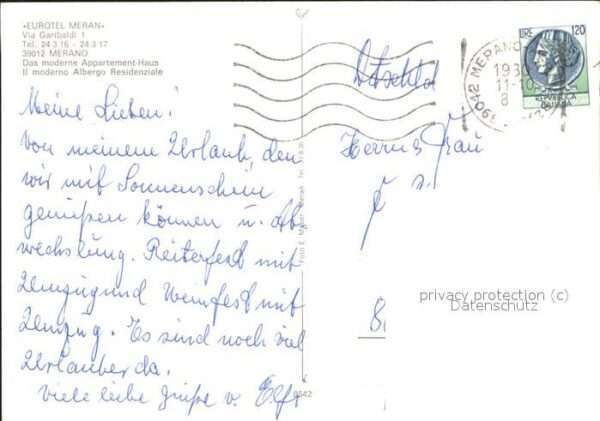 «EUROTEL MERAN»
Via Garibaldi 1
Tel. 24.3.16 - 24.3.17
39012 MERANO
Das moderne Appartement-Haus
Il moderno Albergo Residenziale
Meine Lieben!
Von meinem Urlaub, den
wir mit Sonnenschein
genießen können u. Ab
wechslung. Reiterfest mit
Umzug und Weinfest mit
Umzug. Es sind noch viel
Urlauber da.
viele liebe Grüße v.
Dtschld
Herrn & Frau
LIRE 120
MERANO
11-10
8
privacy protection (c)
Datenschutz
Foto E.